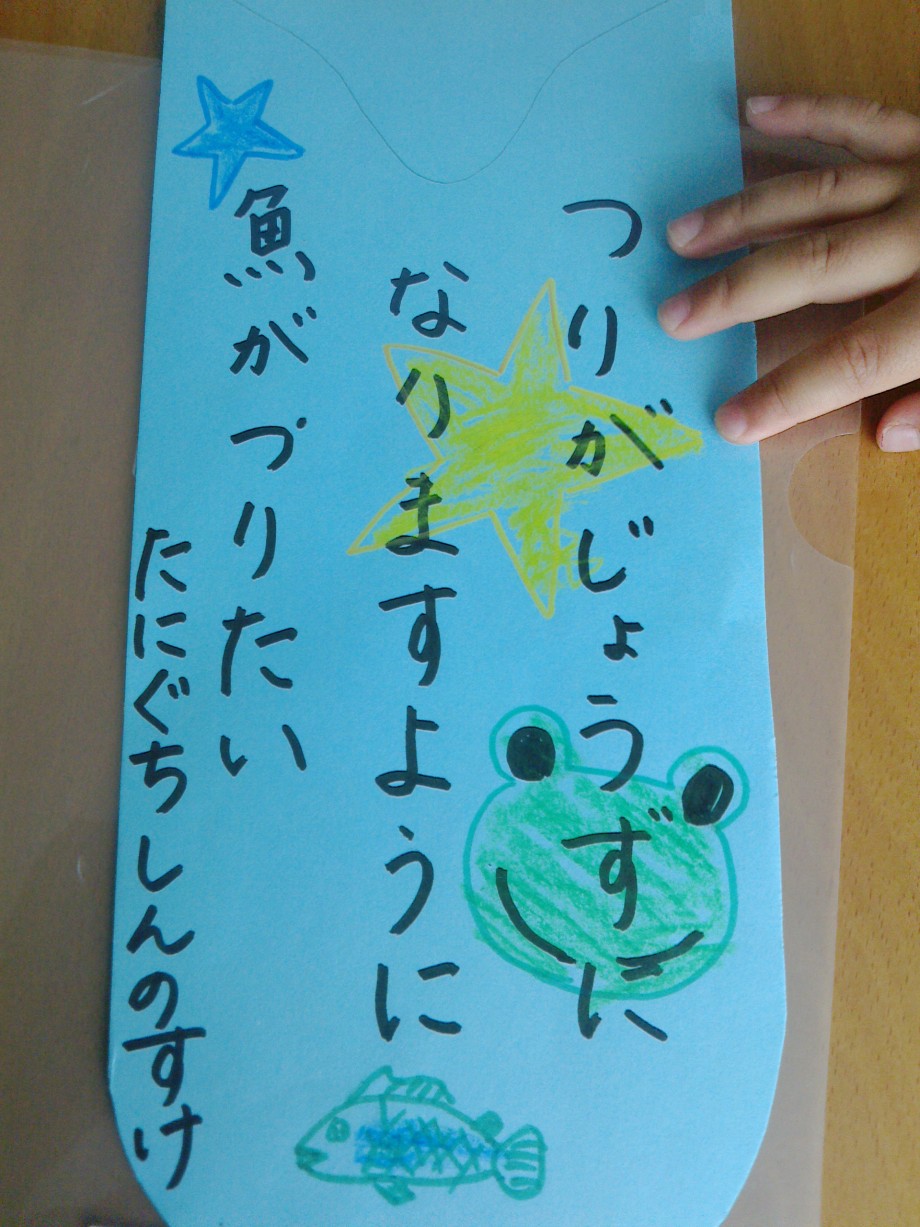 つりがじょうずに
なりますように
魚がづりたい
たにぐちしんのすけ